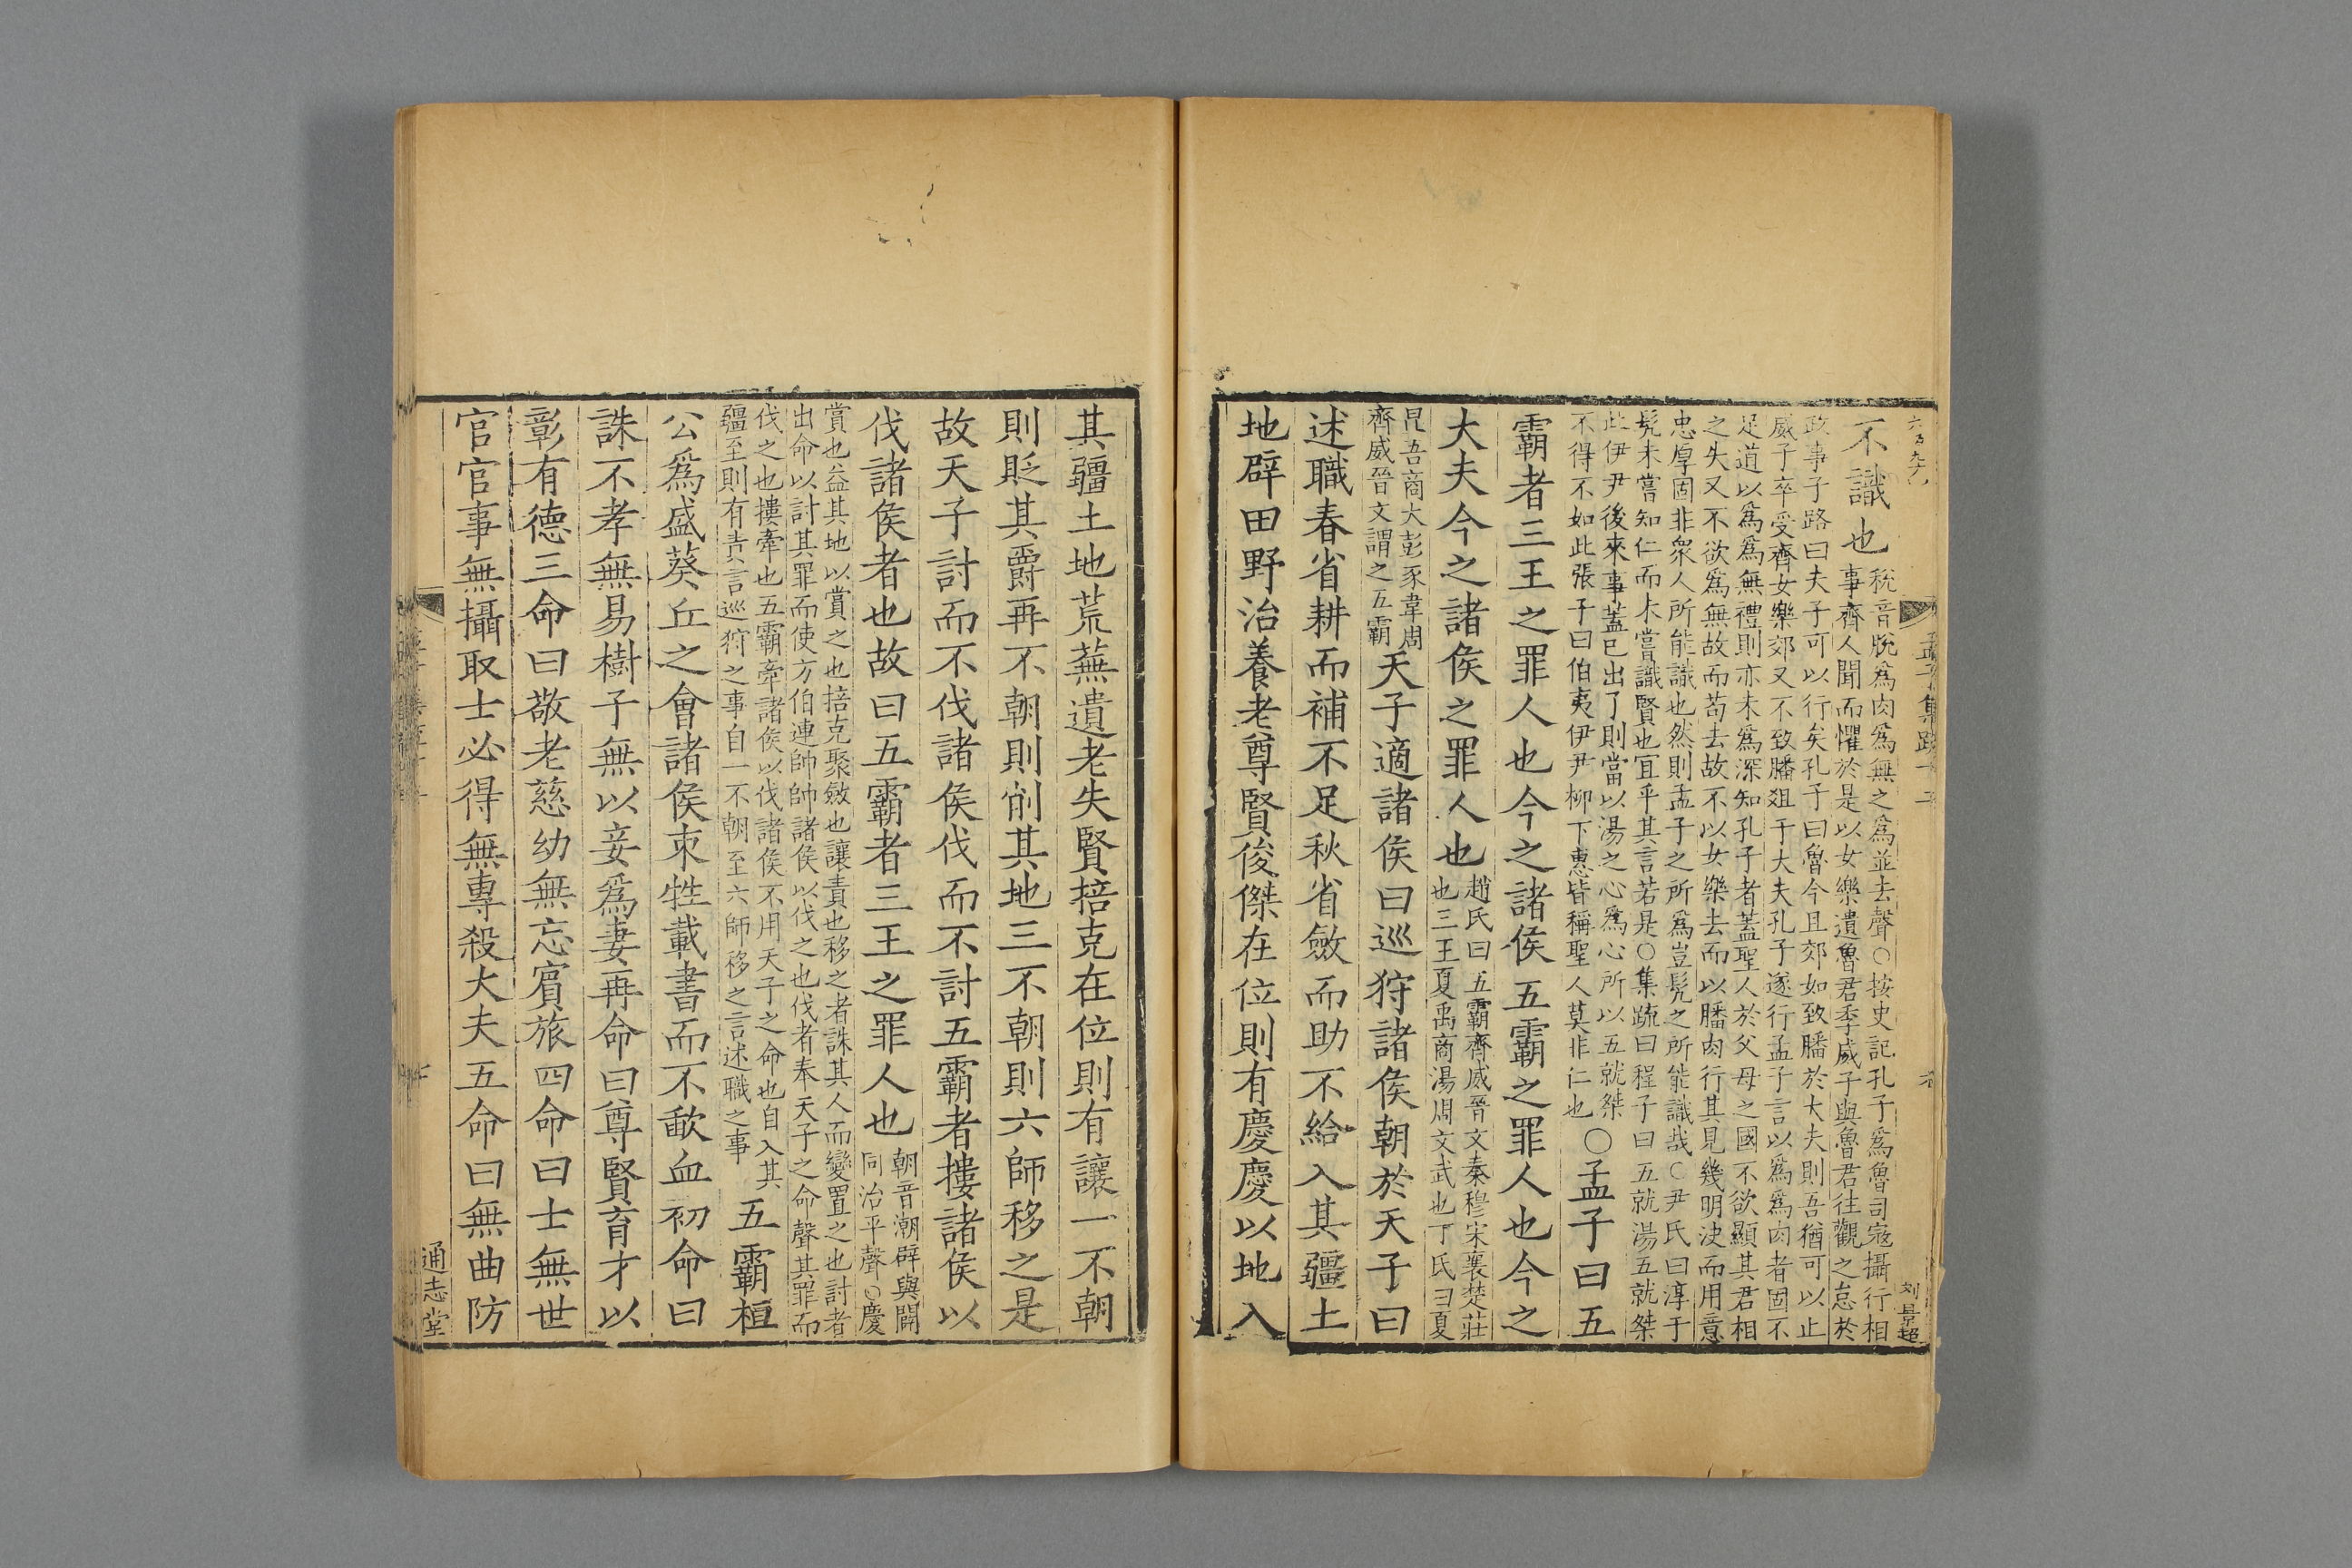 孟子集疏
不識也
稅音脫爲肉爲無之爲並去聲○按史記孔子爲魯司寇攝行相
事齊人聞而懼於是以女樂遺魯君季威子與魯君往觀之怠於
政事子路曰夫子可以行矣孔子曰魯今且郊如致膰於大夫則吾猶可以止
威子卒受齊女樂郊又不致膰俎于大夫孔子遂行孟子言以爲爲肉者固不
足道以爲爲無禮則亦未爲深知孔子者蓋聖人於父母之國不欲顯其君相
之失又不欲爲無故而苟去故不以女樂去而以膰肉行其見幾明決而用意
忠厚固非衆人所能識也然則孟子之所爲豈髠之所能識哉○尹氏曰淳于
髠未嘗知仁而未嘗識賢也宜乎其言若是○集疏曰程子曰五就湯五就桀
此伊尹後來事蓋已出了則當以湯之心爲心所以五就桀
不得不如此張子曰伯夷伊尹柳下惠皆稱聖人莫非仁也
○孟子曰五
霸者三王之罪人也今之諸侯五霸之罪人也今之
大夫今之諸侯之罪人也
趙氏曰五霸齊威晉文秦穆宋襄楚莊
也三王夏禹商湯周文武也丁氏曰夏
昆吾商大彭豕韋周
齊威晉文謂之五霸
天子適諸侯曰巡狩諸侯朝於天子曰
述職春省耕而補不足秋省斂而助不給入其疆土
地辟田野治養老尊賢俊傑在位則有慶慶以地入
刘景超
其疆土地荒蕪遺老失賢掊克在位則有讓一不朝
則貶其爵再不朝則削其地三不朝則六師移之是
故天子討而不伐諸侯伐而不討五霸者摟諸侯以
伐諸侯者也故曰五霸者三王之罪人也
朝音潮辟與闢
同治平聲○慶
賞也益其地以賞之也掊克聚斂也讓責也移之者誅其人而變置之也討者
出命以討其罪而使方伯連帥帥諸侯以伐之也伐者奉天子之命聲其罪而
伐之也摟牽也五霸牽諸侯以伐諸侯不用天子之命也自入其
疆至則有責言巡狩之事自一不朝至六師移之言述職之事
五霸桓
公爲盛葵丘之會諸侯束牲載書而不歃血初命曰
誅不孝無易樹子無以妾爲妻再命曰尊賢育才以
彰有德三命曰敬老慈幼無忘賓旅四命曰士無世
官官事無攝取士必得無專殺大夫五命曰無曲防
通志堂